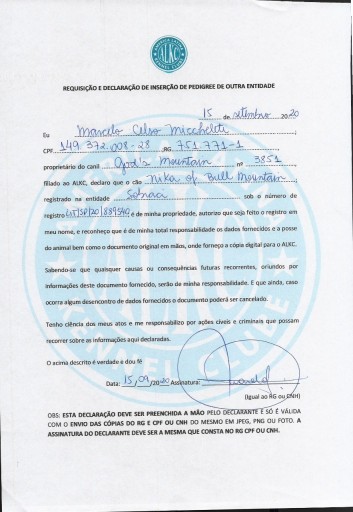 ALKC
REQUISIÇÃO E DECLARAÇÃO DE INSERÇÃO DE PEDIGREE DE OUTRA ENTIDADE
15 de setembro 2020
Eu Marcelo Celso Miccheleti
CPF 149.372.008-28 RG 751.771-1
proprietário do canil God's Mountain nº 3851
filiado ao ALKC, declaro que o cão Nika of Bull Mountain
registrado na entidade Sobraci sob o número de
registro é de minha propriedade, autorizo que seja feito o registro em
meu nome, e reconheço que é de minha total responsabilidade os dados fornecidos e a posse
do animal bem como o documento original em mãos, onde forneço a cópia digital para o ALKC.
Sabendo-se que quaisquer causas ou consequências futuras recorrentes, oriundos por
informações deste documento fornecido, serão de minha responsabilidade. E que ainda, caso
ocorra algum desencontro de dados fornecidos o documento poderá ser cancelado.
Tenho ciência dos meus atos e me responsabilizo por ações cíveis e criminais que possam
recorrer sobre as informações aqui declaradas.
O acima descrito é verdade e dou fé
Data: 15/09/2020 Assinatura:
(Igual ao RG ou CNH)
OBS: ESTA DECLARAÇÃO DEVE SER PREENCHIDA A MÃO PELO DECLARANTE E SÓ É VÁLIDA
COM O ENVIO DAS CÓPIAS DO RG E CPF OU CNH DO MESMO EM JPEG, PNG OU FOTO. A
ASSINATURA DO DECLARANTE DEVE SER A MESMA QUE CONSTA NO RG CPF OU CNH.